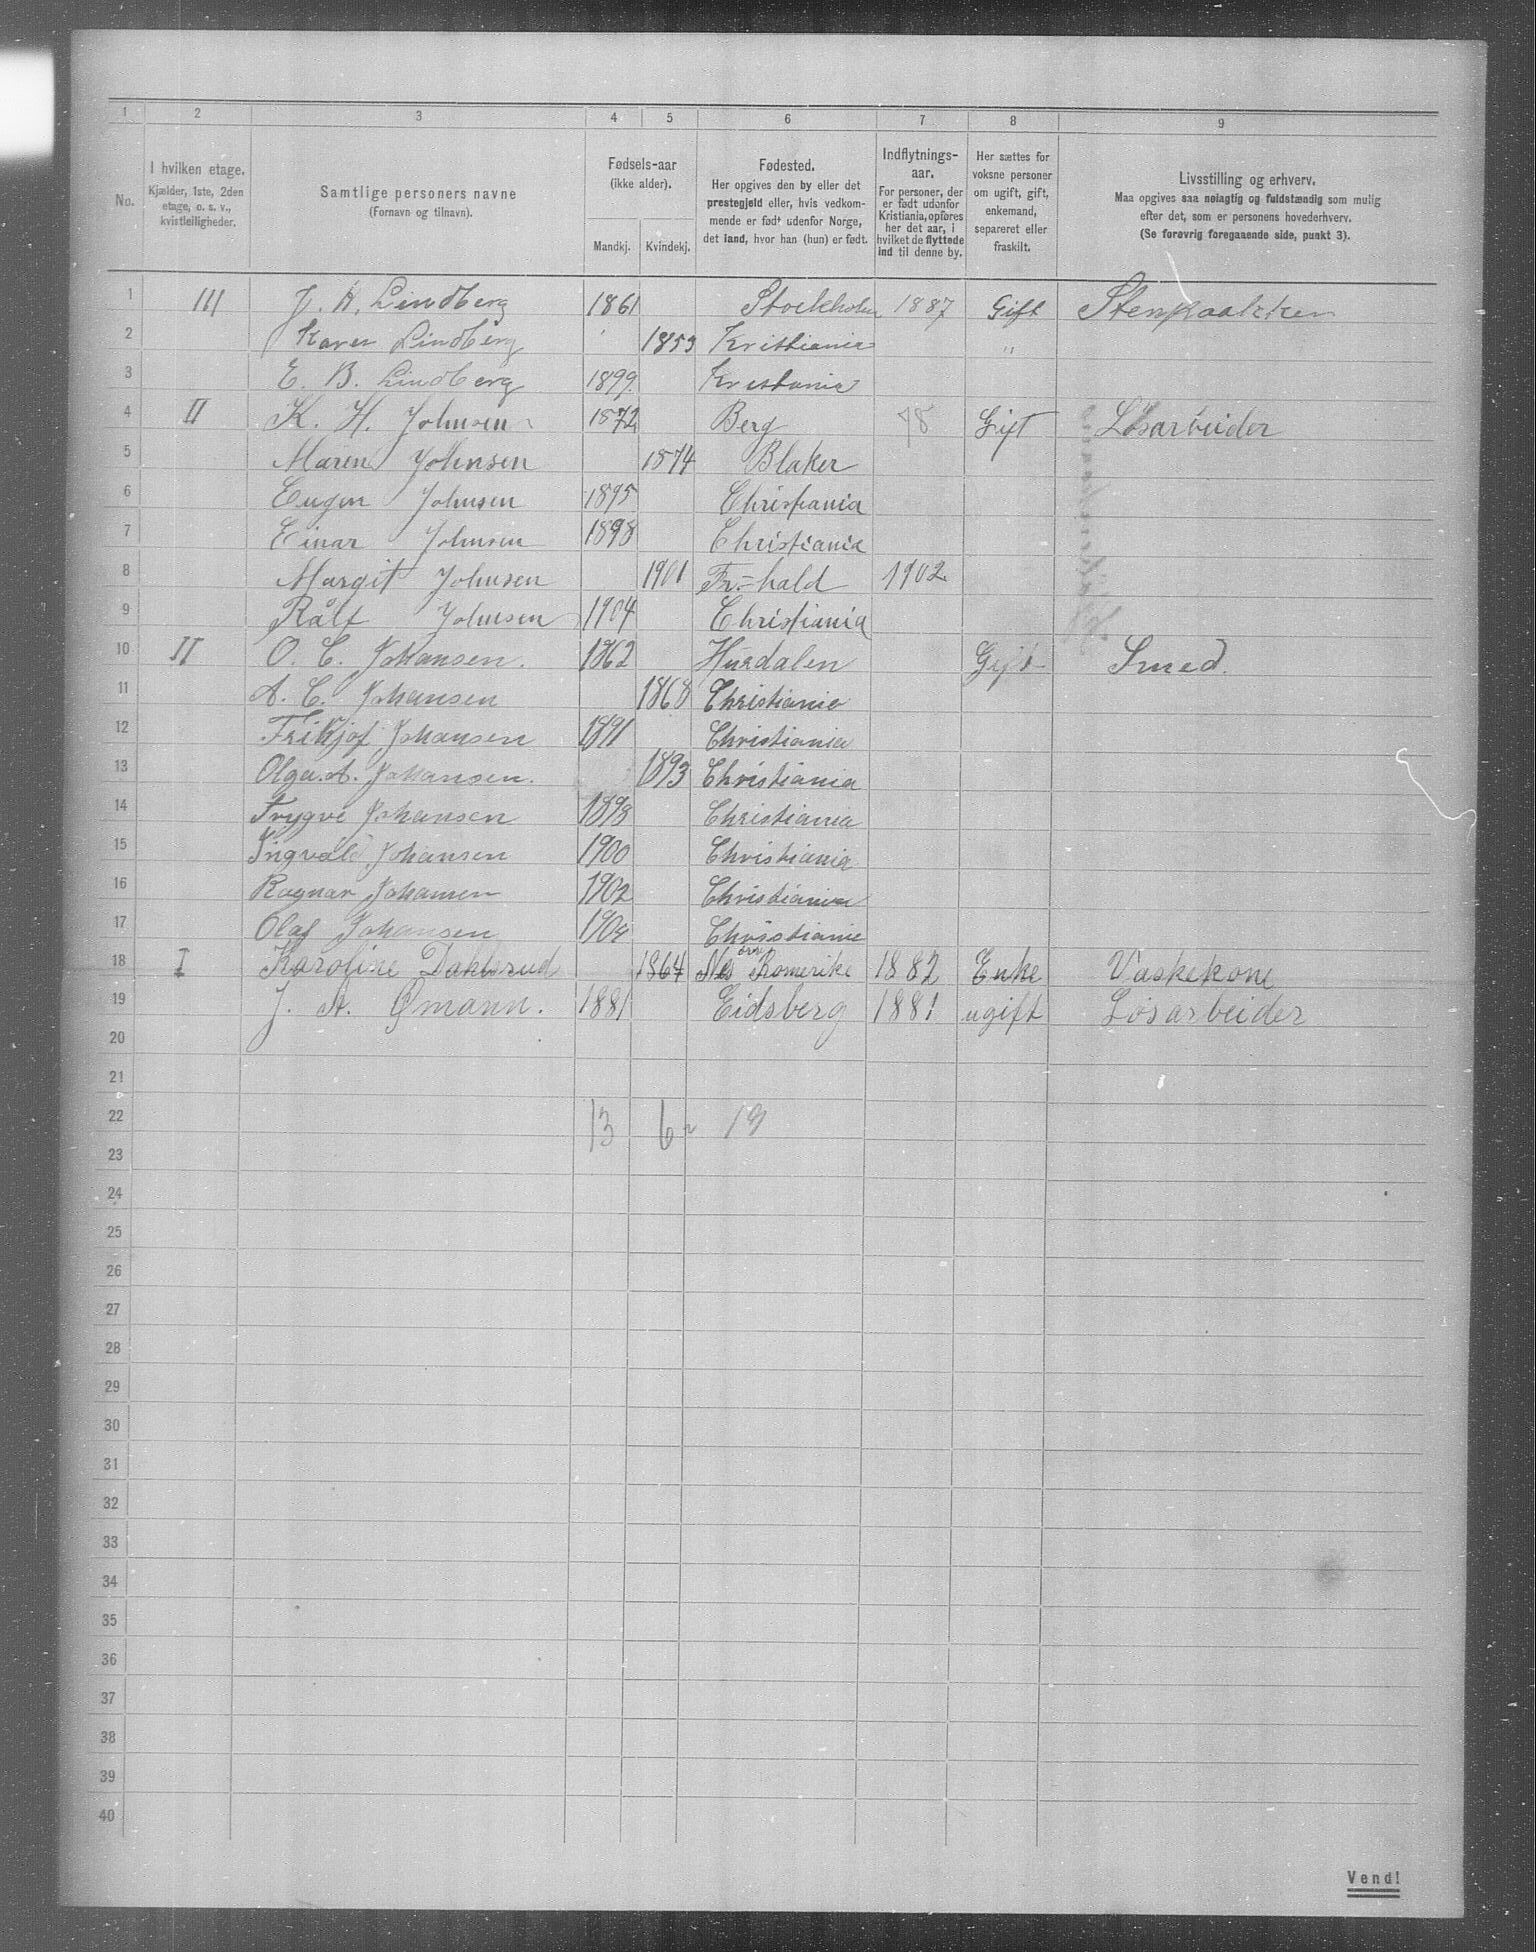 1 2 3 4 5 6 7 8 9
No.
I hvilken etage.
Kjælder, 1ste, 2den
etage, o. s. v.,
kvistleiligheder.
Samtlige personers navne
(Fornavn og tilnavn).
Fødsels-aar
(ikke alder).
Mandkj. Kvindekj.
Fødested.
Her opgives den by eller det
prestegjeld eller, hvis vedkom-
mende er født udenfor Norge,
det land, hvor han (hun) er født.
Indflytnings-
aar.
For personer, der
er født udenfor
Kristiania, opføres
her det aar, i
hvilket de flyttede
ind til denne by.
Her sættes for
voksne personer
om ugift, gift,
enkemand,
separeret eller
fraskilt.
Livsstilling og erhverv.
Maa opgives saa nøiagtig og fuldstændig som mulig
efter det, som er personens hovederhverv.
(Se forøvrig foregaaende side, punkt 3).
1 III J. H. Lindberg 1861 Stockholm 1887 Gift
2 Karen Lindberg 1853 Kristiania "
3 E. B. Lindberg 1899 Kristania
4 II K. H. Johnsen 1872 Berg 98 Gift Løsarbeider
5 Maren Johnsen 1874 Blaker
6 Eugen Johnsen 1895 Christiania
7 Einar Johnsen 1898 Christiania
8 Margit Johnsen 1901 Fr.=hald 1902
9 Rålf Johnsen 1904 Christiania
10 II O. C. Johansen. 1862 Hurdalen Gift Smed.
11 A. C. Johansen 1868 Christiania
12 Fritjof Johansen 1891 Christiania
13 Olga A. Johansen. 1893 Christiania
14 Trygve Johansen 1898 Christiania
15 Ingvald Johansen 1900 Christiania
16 Ragnar Johansen 1902 Christiania
17 Olaf Johansen 1904 Christiania
18 I Karoline Dahlsrud 1864 Nes Romerike 1882 Enke Vaskekone
19 J. A. Ømann. 1881 Eidsberg 1881 ugift Løsarbeider
20
21
22 13 6 19
23
24
25
26
27
28
29
30
31
32
33
34
35
36
37
38
39
40
Vend!